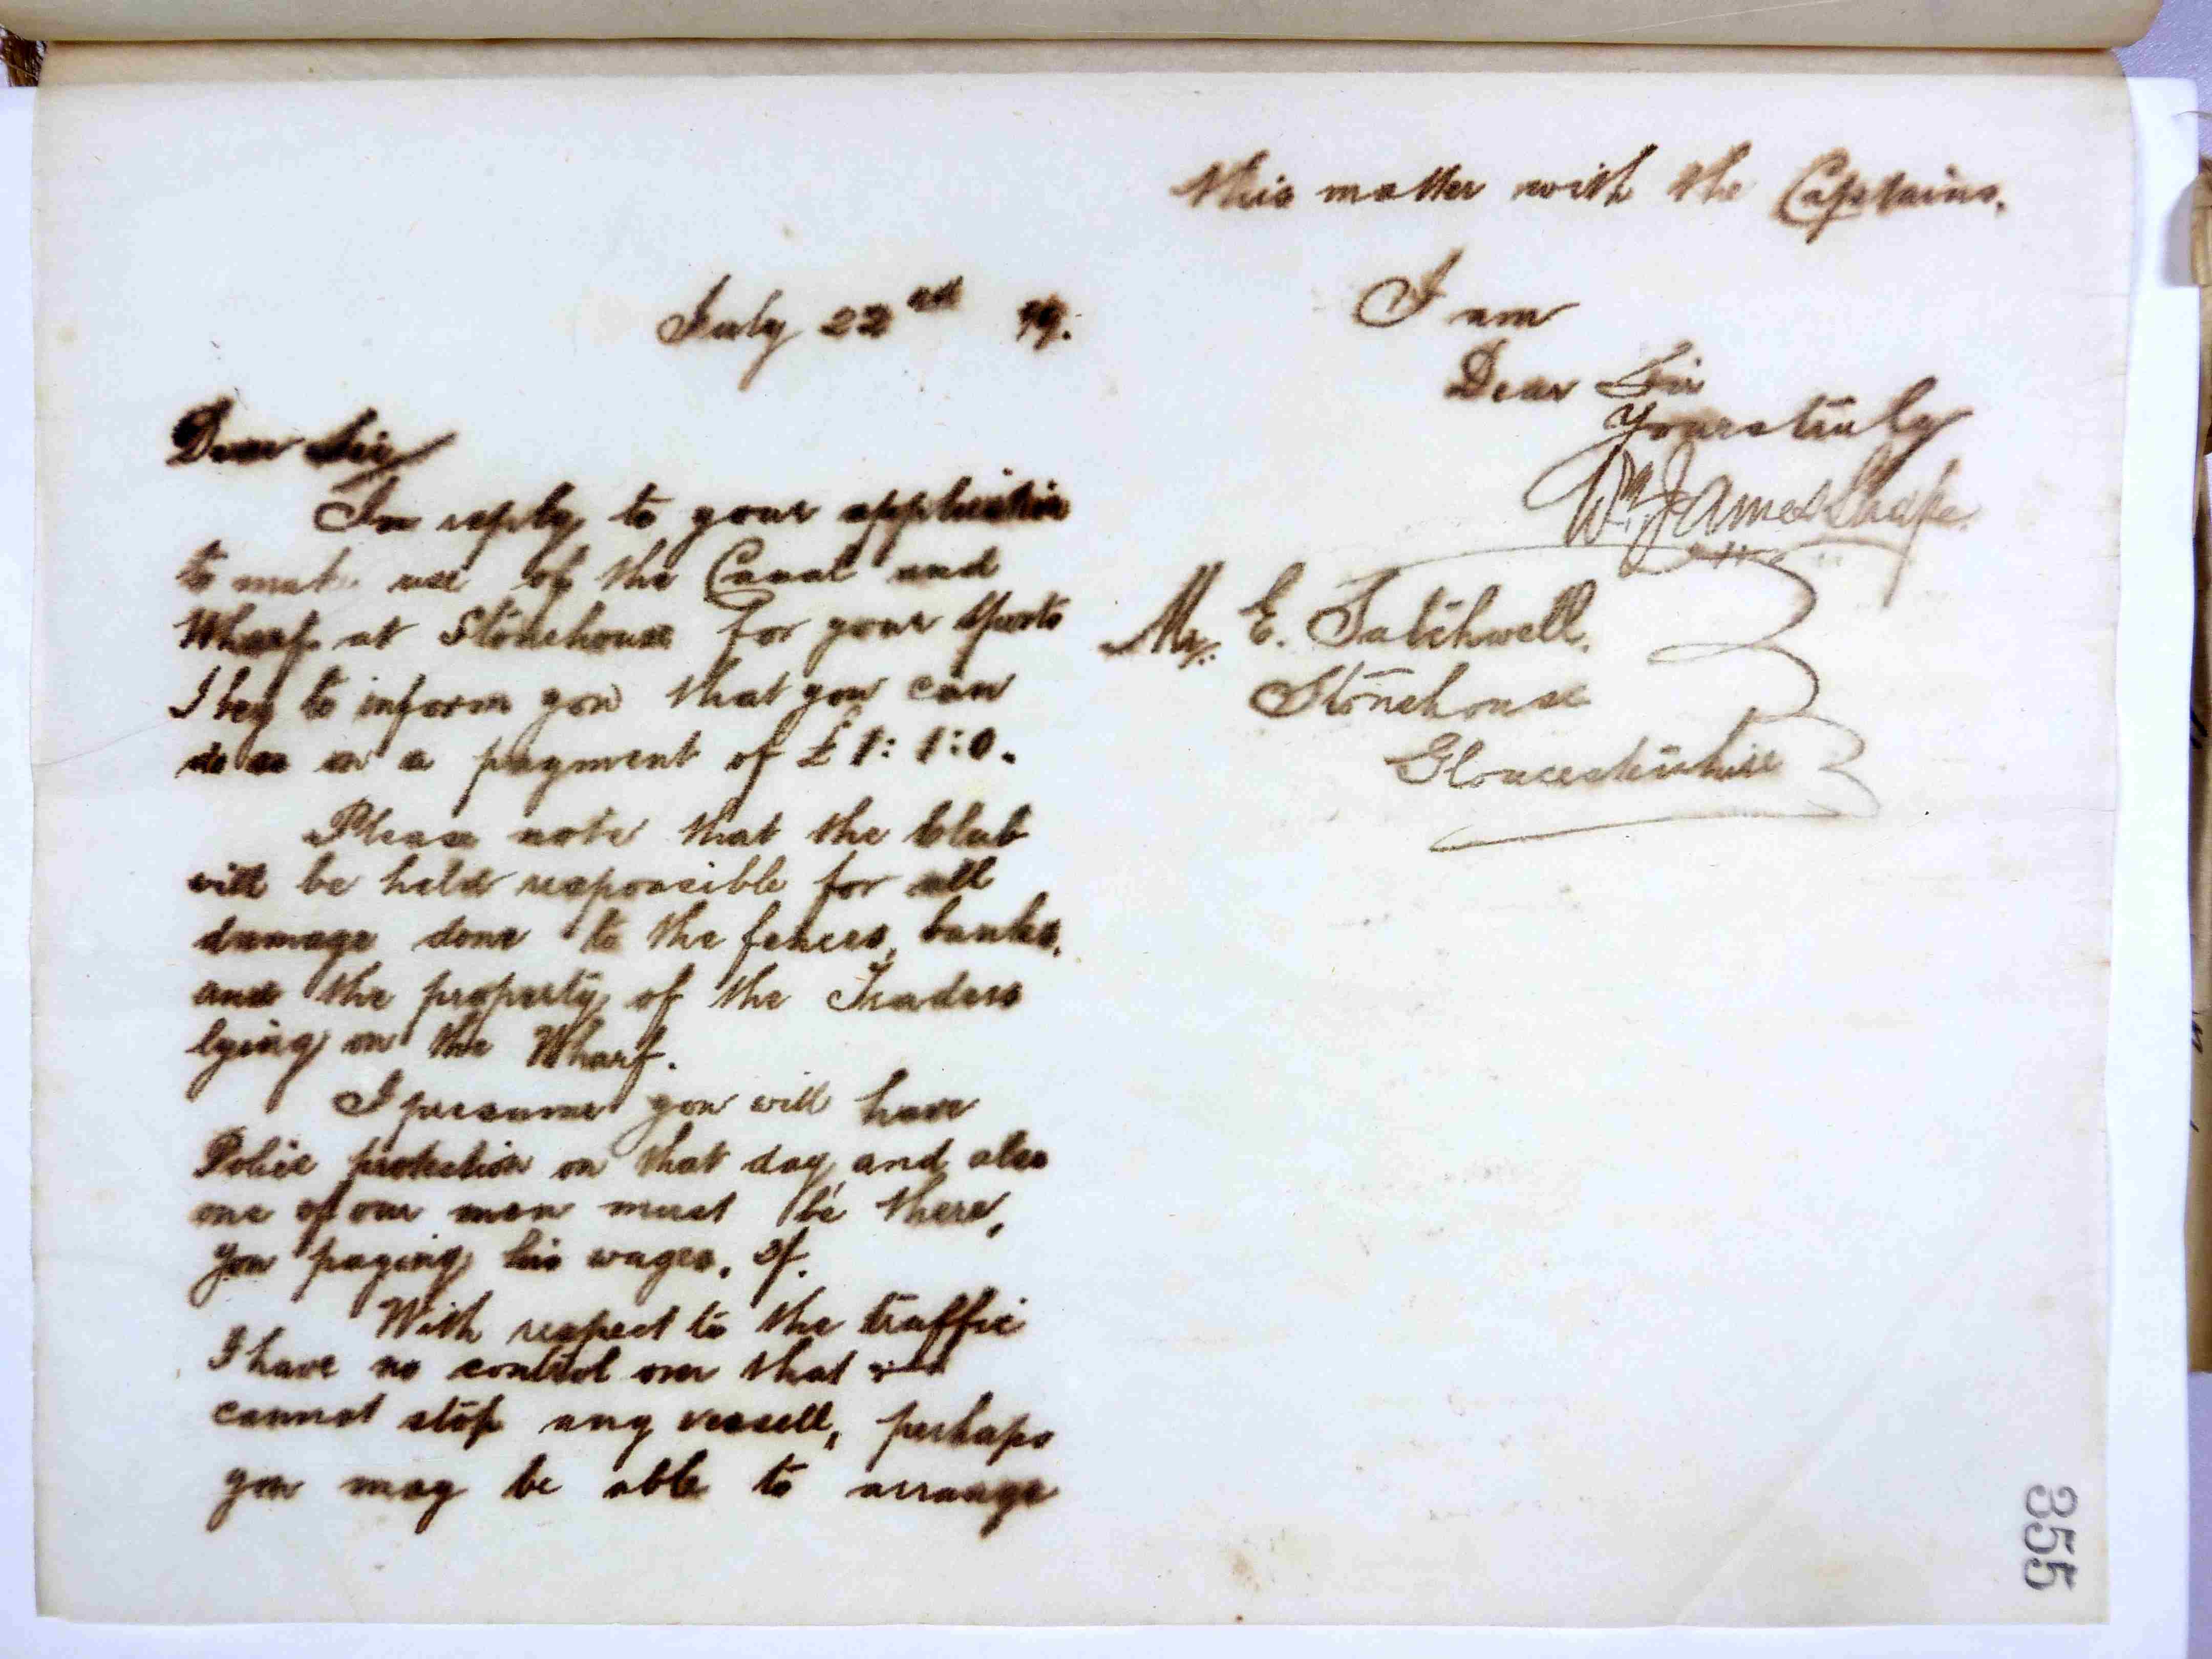 July 22nd 99.
Dear Sir
In reply to your application
to make use of the Canal and
Wharf at Stonehouse for your sports
I beg to inform you that you can
do so on a payment of £1:1:0.
Please note that the Club
will be held responsible for all
damage done to the fences, banks,
and the property of the Traders
lying on the Wharf.
I presume you will have
Police protection on that day, and also
one of our men must be there,
you paying his wages.
With respect to the traffic
I have no control over that and
cannot stop any vessell, perhaps
you may be able to arrange
this matter with the Captains.
I am
Dear Sir
Yours truly
Wm. James Snape
Mr. E. Satchwell.
Stonehouse
Gloucestershire
355